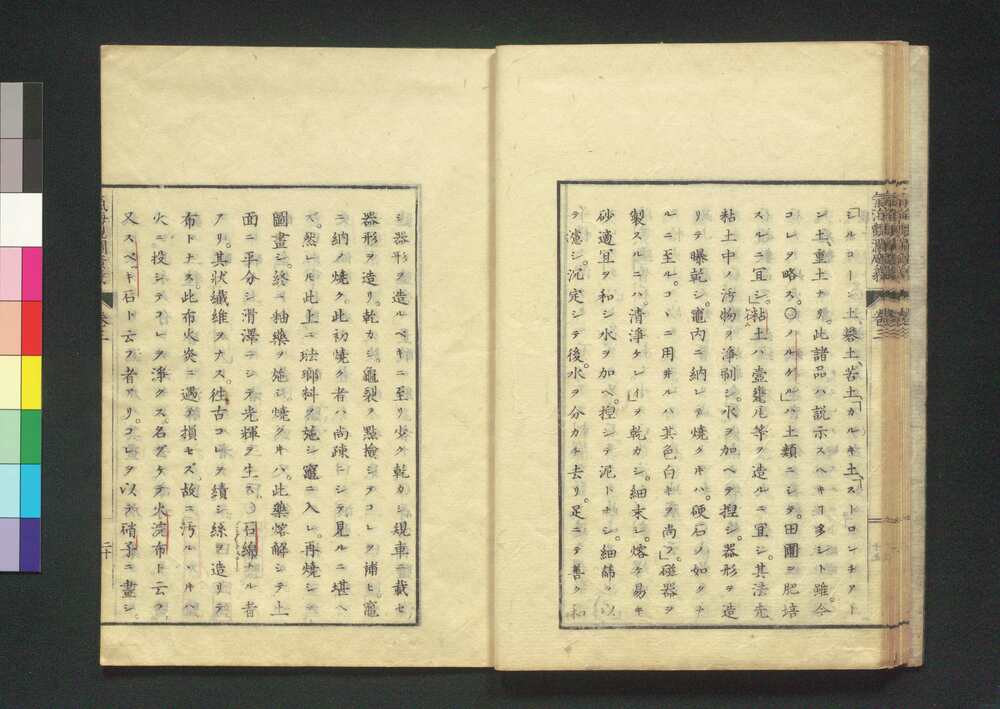 「シルコーン」土礬土、苦土「カルキ」土、「ストロンチアト
ン」土、重土ナリ。此諸品ハ説示スヘキヿ多シト雖。今
コレヲ略ス。〇「ノルゲル」ハ土類ニシテ。田圃ヲ肥培
スルニ宜シ」。粘土ハ壺甕瓦等ヲ造ルニ宜シ。其法先
粘土中ノ汚物ヲ浄制シ。水ヲ加ヘテ揑シ。器形ヲ造
リテ曝乾シ。竈内ニ納レテ燒クキハ。硬石ノ如クナ
ルニ至ル。コヽニ用ヰルハ其色白キヲ尚フ」。磁器ヲ
製スルニハ。清浄ケレイ」ヲ乾カシ。細末シ。熔ケ易キ
砂適宜ヲ和シ水ヲ加ヘ。揑シテ泥トナシ。細篩ヲ以
テ濾シ。沉定シテ後。水ヲ分カチ去リ。足ニテ善ク和
シ器形ヲ造ルベキニ至リ少ク乾カシ規車ニ載セ
器形ヲ造リ。乾カシ。龜裂ヲ點撿シテコレヲ補ヒ竈
ニ納メ燒ク。此初燒ク者ハ尚疎ニシテ見ルニ堪ヘ
ス。然レル此上ニ琺瑯料ヲ施シ竈ニ入レ。再燒シテ
圖畫シ。終ニ釉藥ヲ施シ燒クキハ。此藥熔解シテ上
面ニ平分シ滑澤ニシテ光輝ヲ生ス。〇石綿ナル者
アリ。其状纖維ヲナス。徃古コレヲ績シ絲ヲ造リテ
布トナス。此布火炎ニ遇テ損セズ。故ニ汚ルヽキハ
火ニ投シテコレヲ浄クス。名ヅケテ火浣布ト云フ
又スベキ石ト云フ者アリ。コレヲ以テ硝子ニ畫シ。
二十